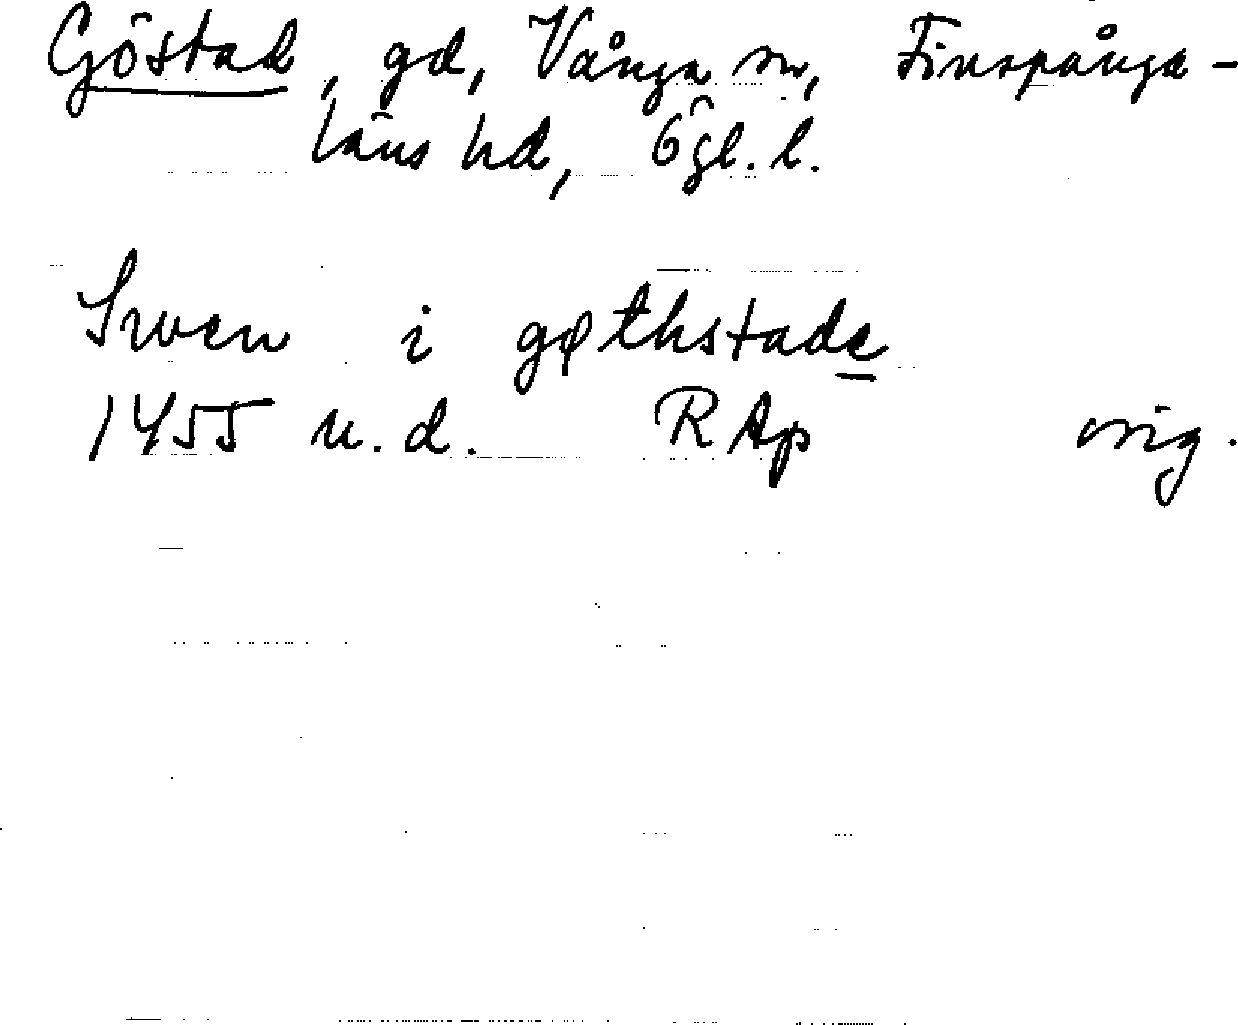 Göstad, gd, Vånga sn, Finspånga-
läns hd, Ögl. l.
Swen i gøthstade
1455 u.d. RAp orig.